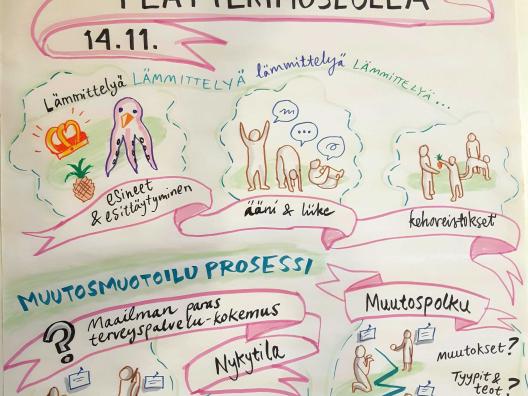 14.11.
Lämmittelyä LÄMMITTELYÄ lämmittelyä LÄMMITTELYÄ...
esineet
& esittäytyminen
ääni & liike
kehoveistokset
MUUTOSMUOTOILU PROSESSI
?
Maailman paras
terveyspalvelu-kokemus
Nykytila
Muutospolku
muutokset?
Tyypit &
teot?